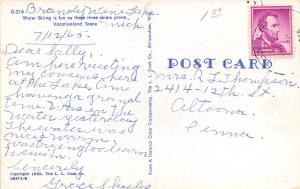 G-316 Brandy Wine Lake
Water Skiing is fun as these three skiers prove. Mich
Vacationland Scene
7/12/65.
Dear Sally,
Am here visiting
my cousins here
at the Lake. Am
having a grand
time. Was in the
water yesterday
The water was
nice & warm
was trying to learn
to swim.
Sincerely
Grace Skyles
Copyright 1960, The L. L. Cook Co.
From A Natural Color Transparency, The L. L. Cook Co., Milwaukee, Wis.
100
POST CARD
Mrs. R L Thompson
2414-12th St.
Altoona
Penna